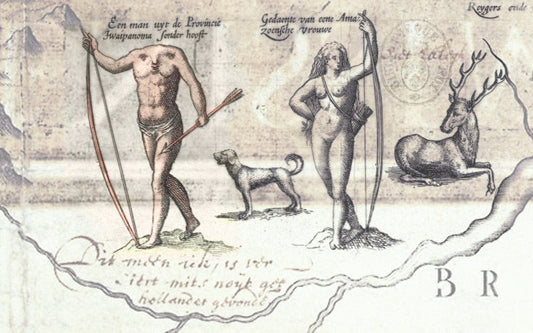 Een man uyt de Provincie
Iwaipanoma sonder hooft
Gedaente van eene Ama
zoensche vrouwe
Reygers ende
Dit meen ick, is ver
siert mits noyt gee
hollander gevonde
B R